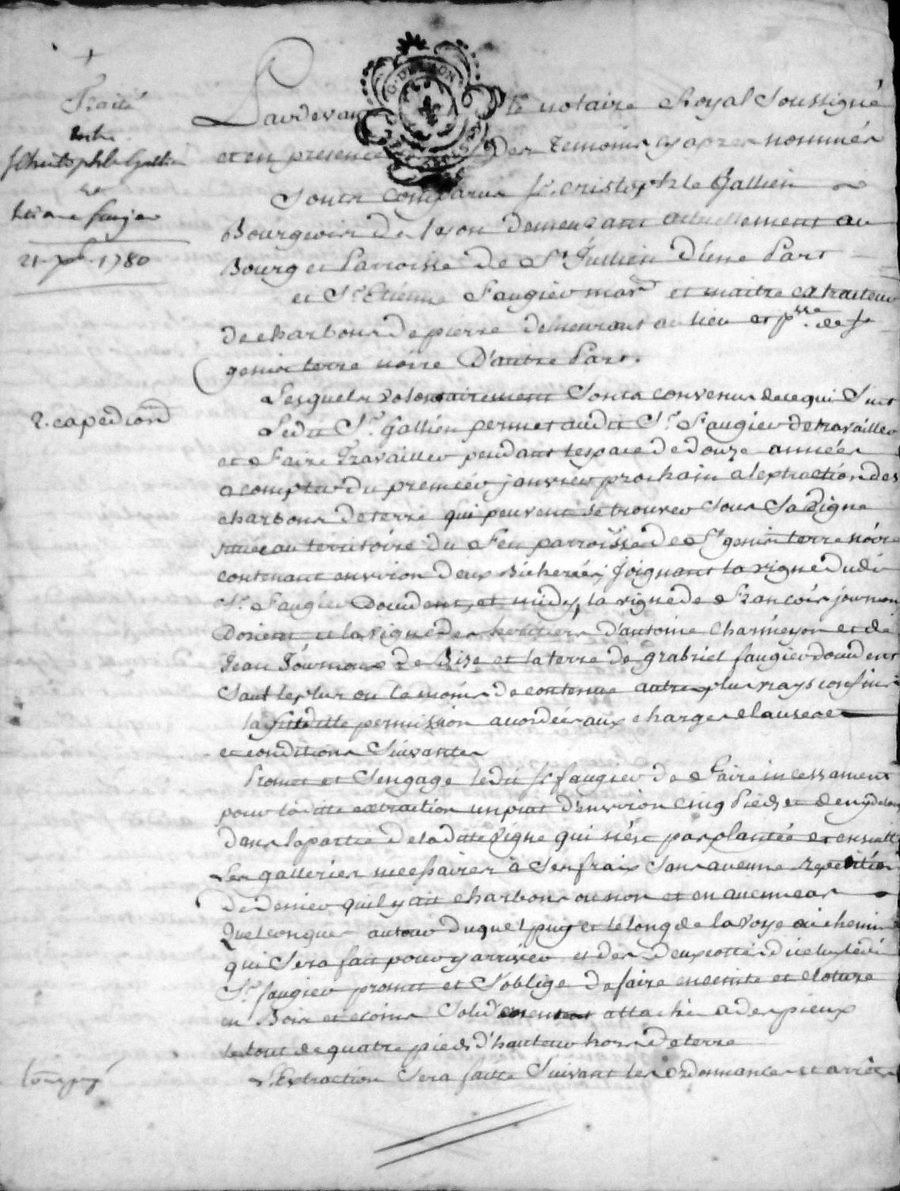 Traité
entre
Sr Christophle Gallien
et
Etienne faugier
21 Xbre 1780
G. DE LYON
Pardevant le notaire Royal Soussigné
et en presence des Temoins cy apres nommés
Sont comparus Sr cristophle Gallien
Bourgeois de lyon demeurant actuellement au
Bourg et Parroisse de St Jullien d'une Part
et Sr Etienne Faugier mard et maitre extracteur
de charbons de pierre demeurant au lieu et psse de St
genis terre noire D'autre Part.
Lesquels volontairement Sont convenus de ce qui Suit
2. expedions
Ledit Sr Gallien permet audit Sr Faugier de travailler
et Faire Travailler pendant lespace de douze années
a compter du premier janvier prochain a lextraction des
charbons de terre qui peuvent se trouver Sous Sa Vigne
située au territoire du Feu parroisse de St genis terre noire
contenant environ deux Bicherées, Joignant la vigne dudit
Sr Faugier Doccident et midy, la vigne de Francois journon
Dorient et la vigne des heritiers d'antoine Charmeyon et de
Jean Fournoux de Bize et la terre de gabriel faugier doccident
Sauf le plus ou le moins de contenue autres plus vrays confins
la Susditte permission accordée aux charges clauses
et conditions Suivantes
Promet et S'engage ledit Sr faugier de Faire incessament
pour ladite extraction un puit d'environ Cinq Pieds et demy de
dans la partie de la dite Vigne qui n'est pas plantée et ensuitte
Les galleries necessaires à Ses frais Sans aucune repetition
de denier qu'il y ait charbons ou non et en aucun cas
quelconques autour duquel puy et le long de la voye ou chemin
qui Sera fait pour y arriver et des deux cottés dicelui ledit
Sr faugier promet et S'oblige de faire enceinte et cloture
en Bois et Solidement attaché a des pieux
le tout de quatre pieds d'hauteur hors de terre
L'Extraction Sera faitte Suivant les ordonnances et arrets